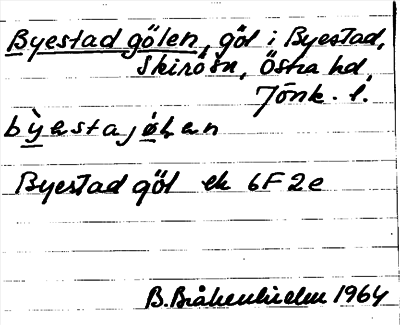 Byestad gölen, göl i Byestad,
Skirö sn, Östra hd,
Jönk. l.
bỳestajø̀len
Byestad göl ek 6F2e
B. Bråkenhielm 1964